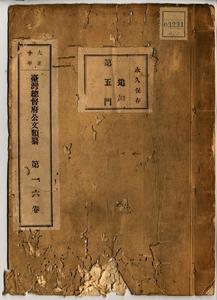 03231
永久保存
追加
第五門
大正十年
臺灣總督府公文類纂 第一六卷